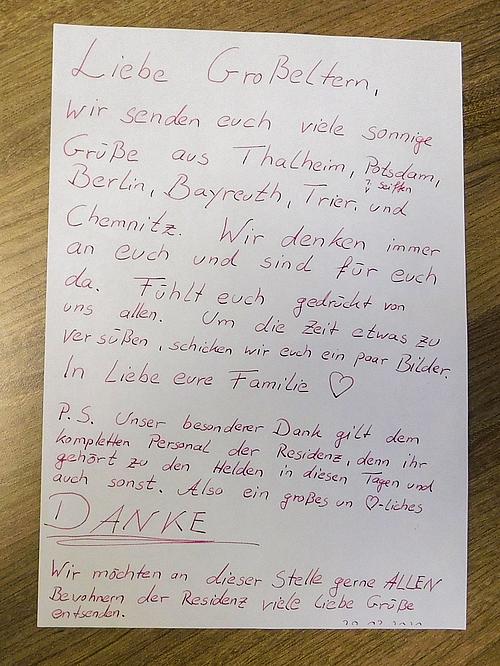 Liebe Großeltern,
wir senden euch viele sonnige
Grüße aus Thalheim, Potsdam,
Berlin, Bayreuth, Trier, Seiffen und
Chemnitz. Wir denken immer
an euch und sind für euch
da. Fühlt euch gedrückt von
uns allen. Um die Zeit etwas zu
versüßen, schicken wir euch ein paar Bilder.
In Liebe eure Familie ♡
P.S. Unser besonderer Dank gilt dem
kompletten Personal der Residenz, denn ihr
gehört zu den Helden in diesen Tagen und
auch sonst. Also ein großes un ♡-liches
DANKE
Wir möchten an dieser Stelle gerne ALLEN
Bewohnern der Residenz viele liebe Grüße
entsenden.